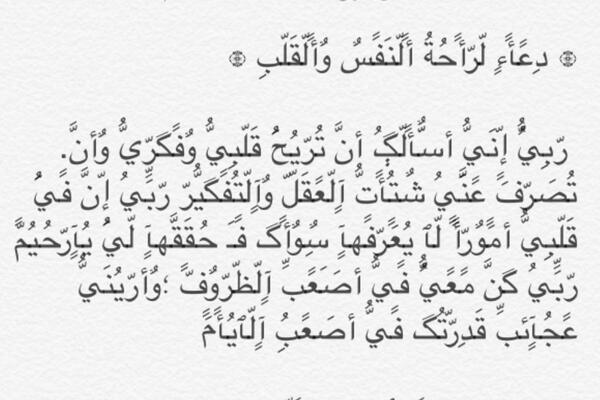 ۞ دِعًّأًءٍ لّرّأّحُةُ ألّنَفُسٌ وٌألّقَلّبِ ۞
رّبِيٌّ إنّيَّ أسٌّألّگِ أنَّ تُرّيُحُ قَلّبِيٌّ وٌفًكرّيٌّ وٌأنَّ.
تُصَرّفَ عًنَّيُّ شُتُأّتُّ آلّعًقَلّ وٌآلّتُفُكيُّرّ رّبِّيُّ إنَّ فَيُّ
قَلّبِيٌّ أمٌوٌرّأً لّآ يُعًرّفُهآ سٌِوٌأگ فُـ حُقَقَّهآ لّيُّ يُآرّحُيُمٌّ
رّبِّيُّ گنَّ مًعًيٌّ فَيُّ أصَعًبِّ آلّظًرّوٌفَّ ؛وٌأرّيُنَيُّ
عًجُآئبِّ قَدِرّتُگ فَيُّ أصَعًبُِ آلّآيُأمًّ